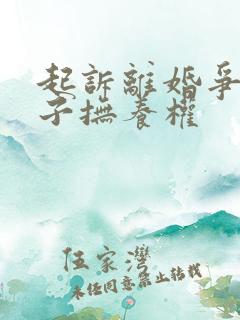 起訴離婚爭
子撫養權
伍家灣
未經同意禁止轉載